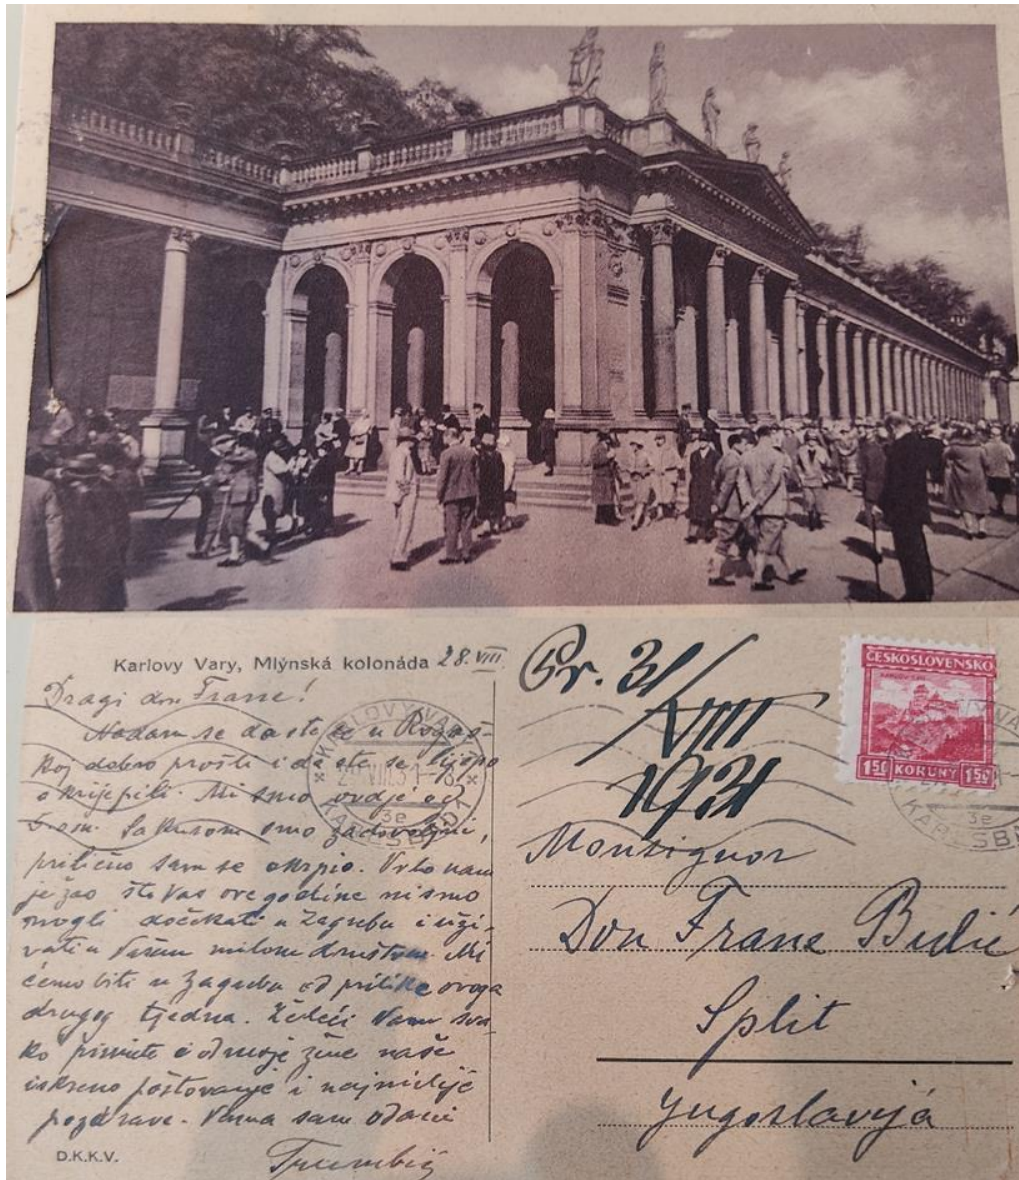 Karlovy Vary, Mlýnská kolonáda 28. VIII.
Dragi don Frane!
Nadam se da ste se u Rogaš-
koj dobro prošli i da ste se lijepo
okrijepili. Mi smo ovdje od
smo zadovoljni,
prilično sam se okrpio. Vrlo nam
je žao što Vas ove godine nismo
mogli dočekati u Zagrebu i uži-
vati u Vašem milom društvu. Mi
ćemo biti u Zagrebu od prilike ovoga
drugog tjedna. Želeći Vam sva-
ko primite i od moje žene naše
iskreno poštovanje i najmilije
pozdrave. Vama sam odani
Trumbić
D.K.K.V.
Pr. 31/
VIII
1931
ČESKOSLOVENSKO
1 50 KORUNY 1 50
KARLOVY VARY
KARLSBAD
3e
Monsignor
Don Frane Bulić
Split
Jugoslavija